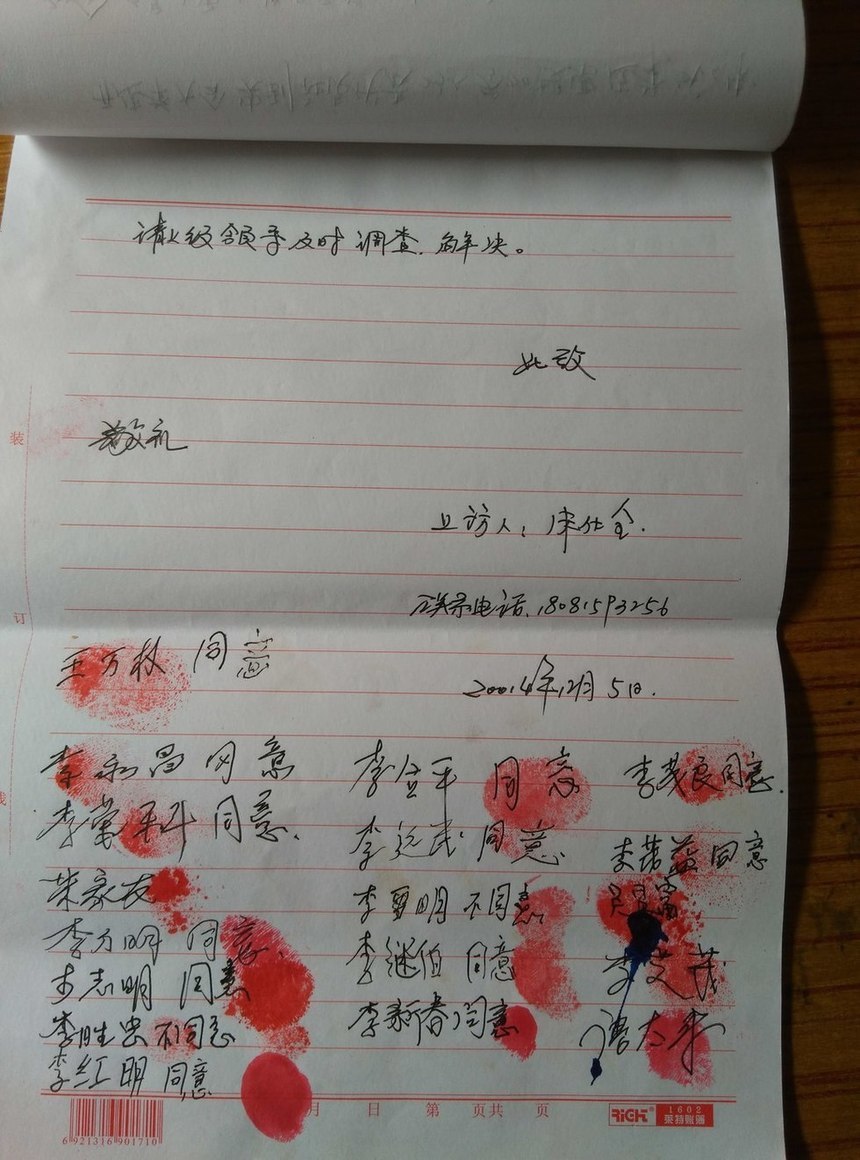 请上级领导及时调查.解决。
此致
敬礼
上访人:
联系电话.18081593256
王万权 同意
20014年12月5日.
李永昌 同意 李益平 同意 李茂良同意.
李常平 同意. 李远武 同意 李茂益 同意
朱家友 李勇明 不同意
李力明 同意. 李继伯 同意 李艾茂
李志明 同意 李新春 同意 谭太平
李胜忠 不同意
李红明 同意
装
订
线
月 日 第 页共 页
RiCH 1602
莱特账簿
6 921316 901710